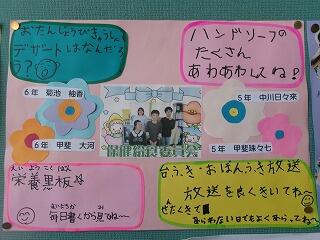 おたんじょうびきゅうしょく
デザートはなんだろ
う?
ハンドソープの
たくさん
あわあわしてね!
6年 菊池 柚香
5年 中川日々來
保健給食委員会
6年 甲斐 大河
6年 甲斐珠々七
えいようこくばん
栄養黒板は
まいにちか
毎日書くから見てね〜
台ふき・おぼんふき放送
放送を良くきいてね〜
せたくきで
あらわないでもよくあらってね〜